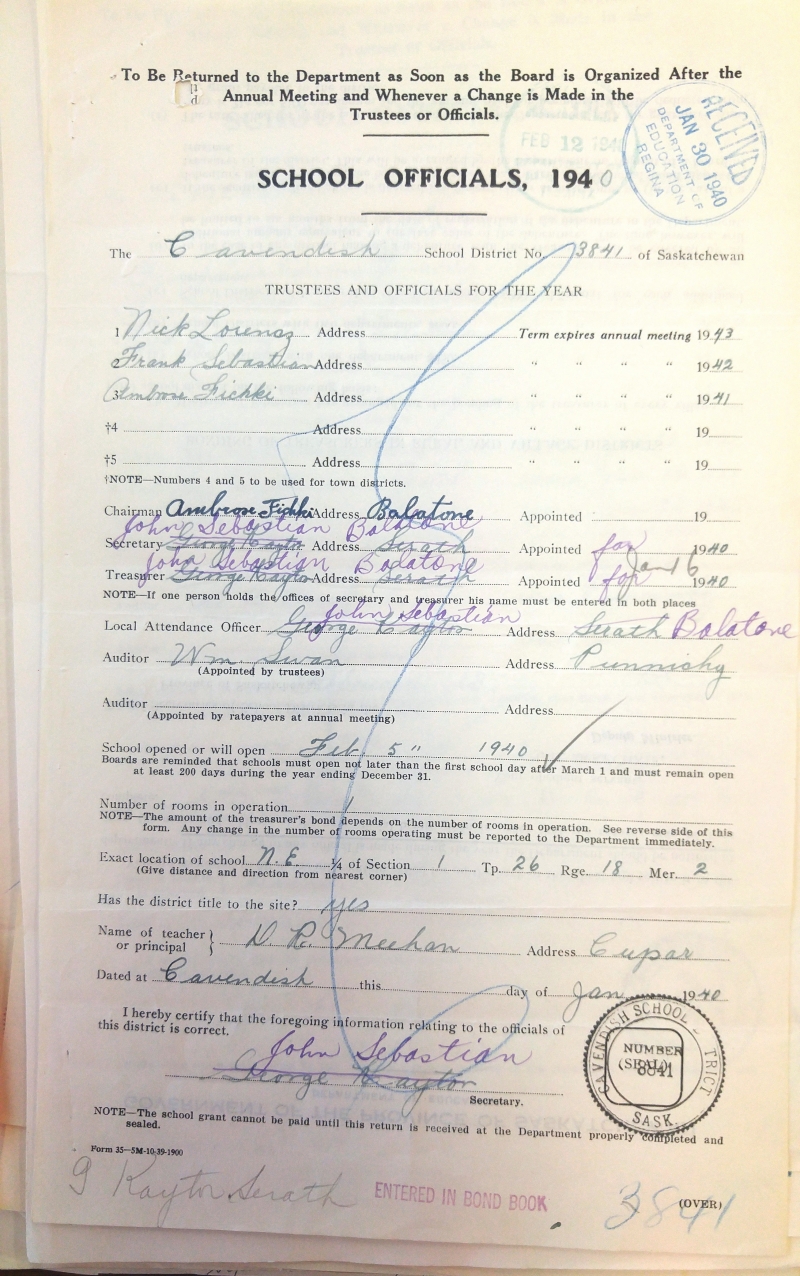 To Be Returned to the Department as Soon as the Board is Organized After the
Annual Meeting and Whenever a Change is Made in the
Trustees or Officials.
FEB 12 194
RECEIVED
JAN 30 1940
DEPARTMENT OF
EDUCATION
REGINA
SCHOOL OFFICIALS, 1940
The Cavendish School District No. 3841 of Saskatchewan
TRUSTEES AND OFFICIALS FOR THE YEAR
1 Nick Lorenz Address Term expires annual meeting 1943
2 Frank Sebastian Address " " " " 1942
3 Ambrose Fichki Address " " " " 1941
†4 Address " " " " 19
†5 Address " " " " 19
†NOTE—Numbers 4 and 5 to be used for town districts.
Chairman Ambrose Fichki Address Balatone Appointed 19
John Sebastian Balatone
Secretary George Kaytor Address Serath Appointed for 1940
John Sebastian Balatone Jan 6
Treasurer George Kaytor Address Serath Appointed for 1940
NOTE—If one person holds the offices of secretary and treasurer his name must be entered in both places
John Sebastian
Local Attendance Officer George Kaytor Address Serath Balatone
Auditor Wm. Swan Address Punnichy
(Appointed by trustees)
Auditor Address
(Appointed by ratepayers at annual meeting)
School opened or will open Feb 5 " 1940
Boards are reminded that schools must open not later than the first school day after March 1 and must remain open
at least 200 days during the year ending December 31.
Number of rooms in operation 1
NOTE—The amount of the treasurer's bond depends on the number of rooms in operation. See reverse side of this
form. Any change in the number of rooms operating must be reported to the Department immediately.
Exact location of school N.E. ¼ of Section 1 Tp. 26 Rge. 18 Mer. 2
(Give distance and direction from nearest corner)
Has the district title to the site? yes
Name of teacher
or principal } D. R. Meehan Address Cupar
Dated at Cavendish this day of Jan 1940
I hereby certify that the foregoing information relating to the officials of
this district is correct.
John Sebastian
George Kaytor
Secretary.
CAVENDISH SCHOOL - TRICT
NUMBER
(SEAL)
3841
SASK.
NOTE—The school grant cannot be paid until this return is received at the Department properly completed and
sealed.
Form 35—5M-10-39-1900
G Kaytor Serath
ENTERED IN BOND BOOK
3841
(OVER)